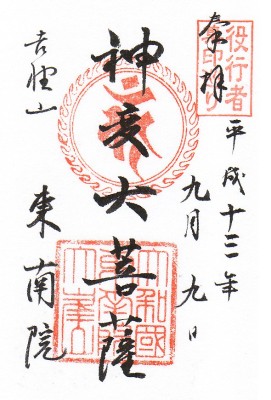 役行者
御印
奉拝
平成十三年
九月九日
神変大菩薩
吉野山
東南院